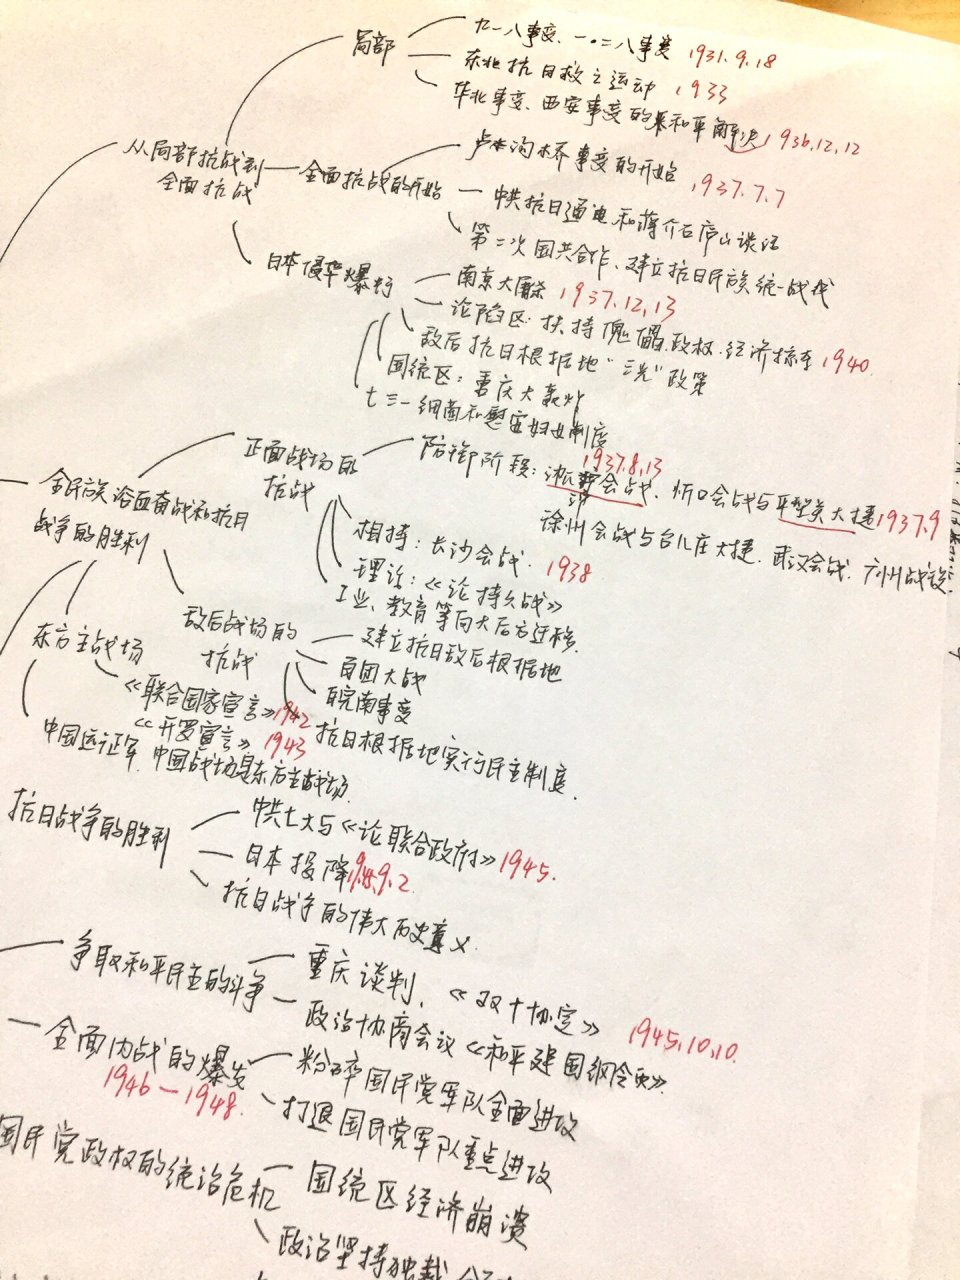 局部
九一八事变、一·二八事变 1931.9.18
东北抗日救亡运动 1933
华北事变、西安事变的和平解决 1936.12.12
从局部抗战到
全面抗战
全面抗战的开始
卢沟桥事变的开始 1937.7.7
中共抗日通电和蒋介石庐山谈话
第二次国共合作、建立抗日民族统一战线
日本侵华暴行
南京大屠杀 1937.12.13
沦陷区:扶持傀儡政权、经济掠夺 1940
敌后抗日根据地"三光"政策
国统区:重庆大轰炸
七三一细菌和慰安妇女制度
全民族浴血奋战和抗日
战争的胜利
正面战场的
抗战
防御阶段:淞沪会战、忻口会战与平型关大捷 1937.9
1937.8.13
徐州会战与台儿庄大捷、武汉会战、广州战役
相持:长沙会战 1938
理论:《论持久战》
工业、教育等向大后方迁移
敌后战场的
抗战
建立抗日敌后根据地
百团大战
皖南事变
抗日根据地实行民主制度
东方主战场
《联合国家宣言》1942
《开罗宣言》1943
中国远征军、中国战场是东方主战场
抗日战争的胜利
中共七大与《论联合政府》1945.
日本投降 9.2
抗日战争的伟大历史意义
争取和平民主的斗争
重庆谈判、《双十协定》 1945.10.10
政治协商会议《和平建国纲领》
全面内战的爆发
1946—1948.
粉碎国民党军队全面进攻
打退国民党军队重点进攻
国民党政权的统治危机
国统区经济崩溃
政治坚持独裁